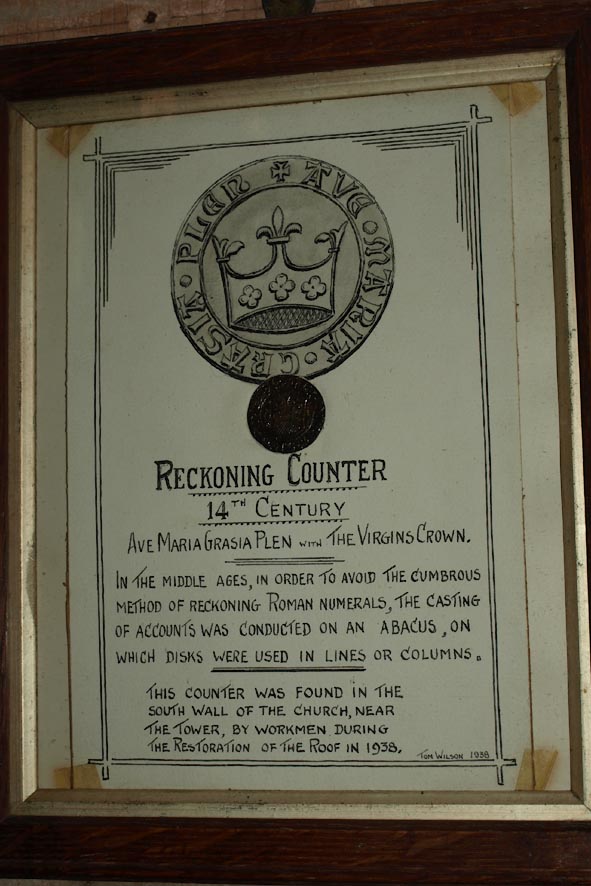 ✠ AVE · MARIA · GRASIA · PLEN
RECKONING COUNTER
14TH CENTURY
AVE MARIA GRASIA PLEN WITH THE VIRGINS CROWN.
IN THE MIDDLE AGES, IN ORDER TO AVOID THE CUMBROUS
METHOD OF RECKONING ROMAN NUMERALS, THE CASTING
OF ACCOUNTS WAS CONDUCTED ON AN ABACUS, ON
WHICH DISKS WERE USED IN LINES OR COLUMNS.
THIS COUNTER WAS FOUND IN THE
SOUTH WALL OF THE CHURCH, NEAR
THE TOWER, BY WORKMEN DURING
THE RESTORATION OF THE ROOF IN 1938.
TOM WILSON 1938